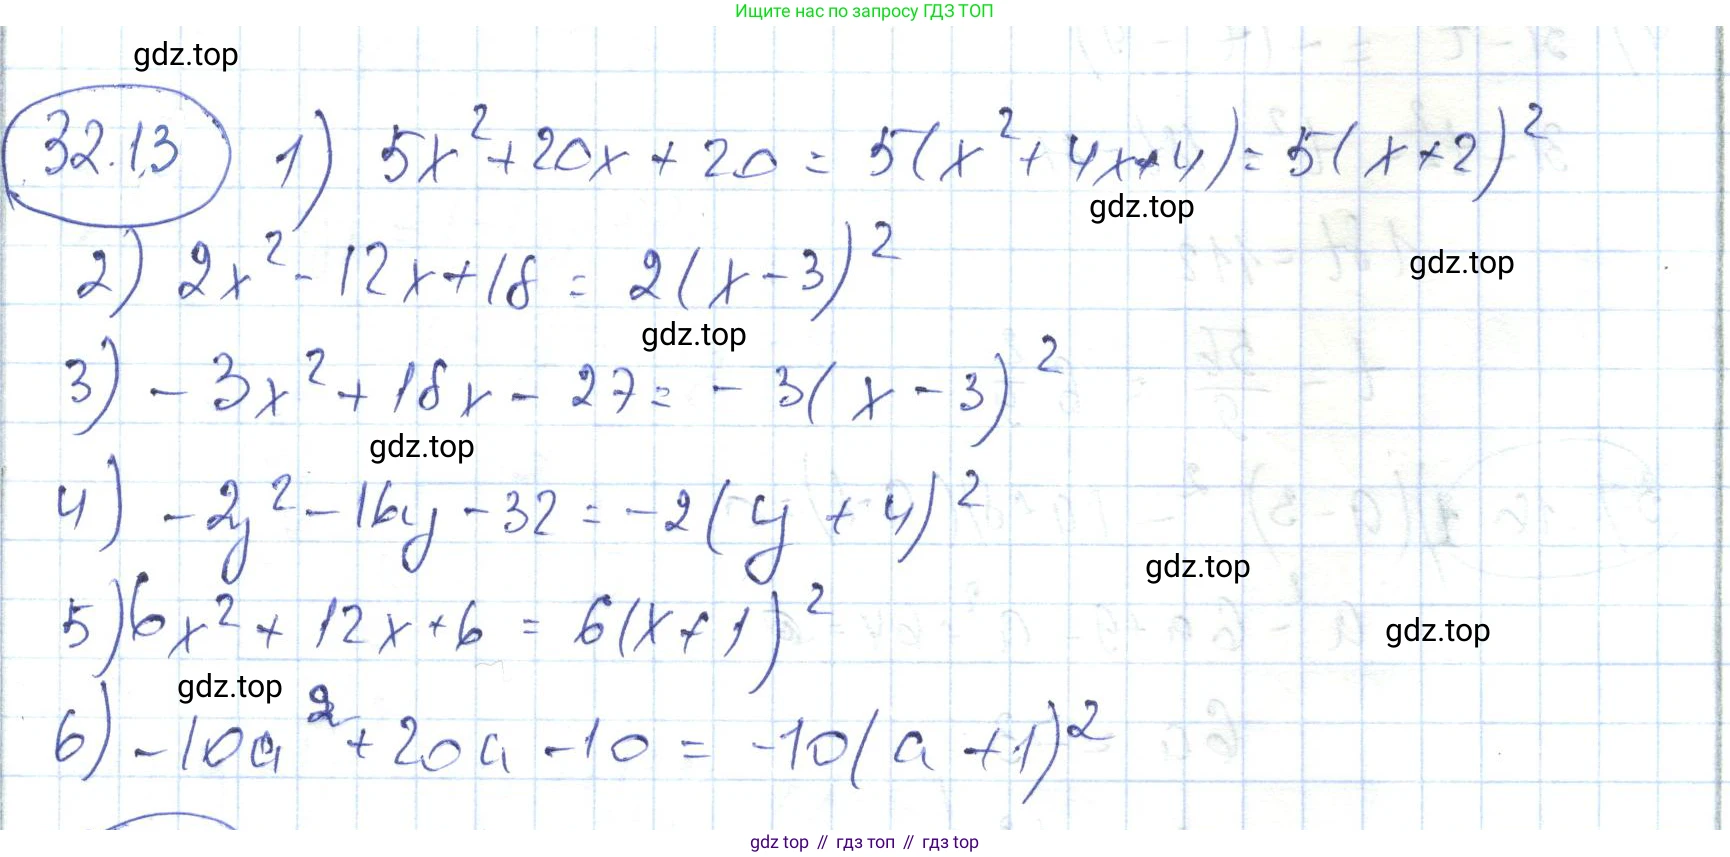 Ищите нас по запросу ГДЗ ТОП
gdz.top
32.13 1) 5x² + 20x + 20 = 5(x² + 4x + 4) = 5(x + 2)²
gdz.top
2) 2x² - 12x + 18 = 2(x - 3)²
gdz.top
gdz.top
3) - 3x² + 18x - 27 = - 3(x - 3)²
gdz.top
4) - 2y² - 16y - 32 = - 2(y + 4)²
gdz.top
5) 6x² + 12x + 6 = 6(x + 1)²
gdz.top
gdz.top
6) - 10a² + 20a - 10 = - 10(a + 1)²
gdz top // гдз топ // gdz top